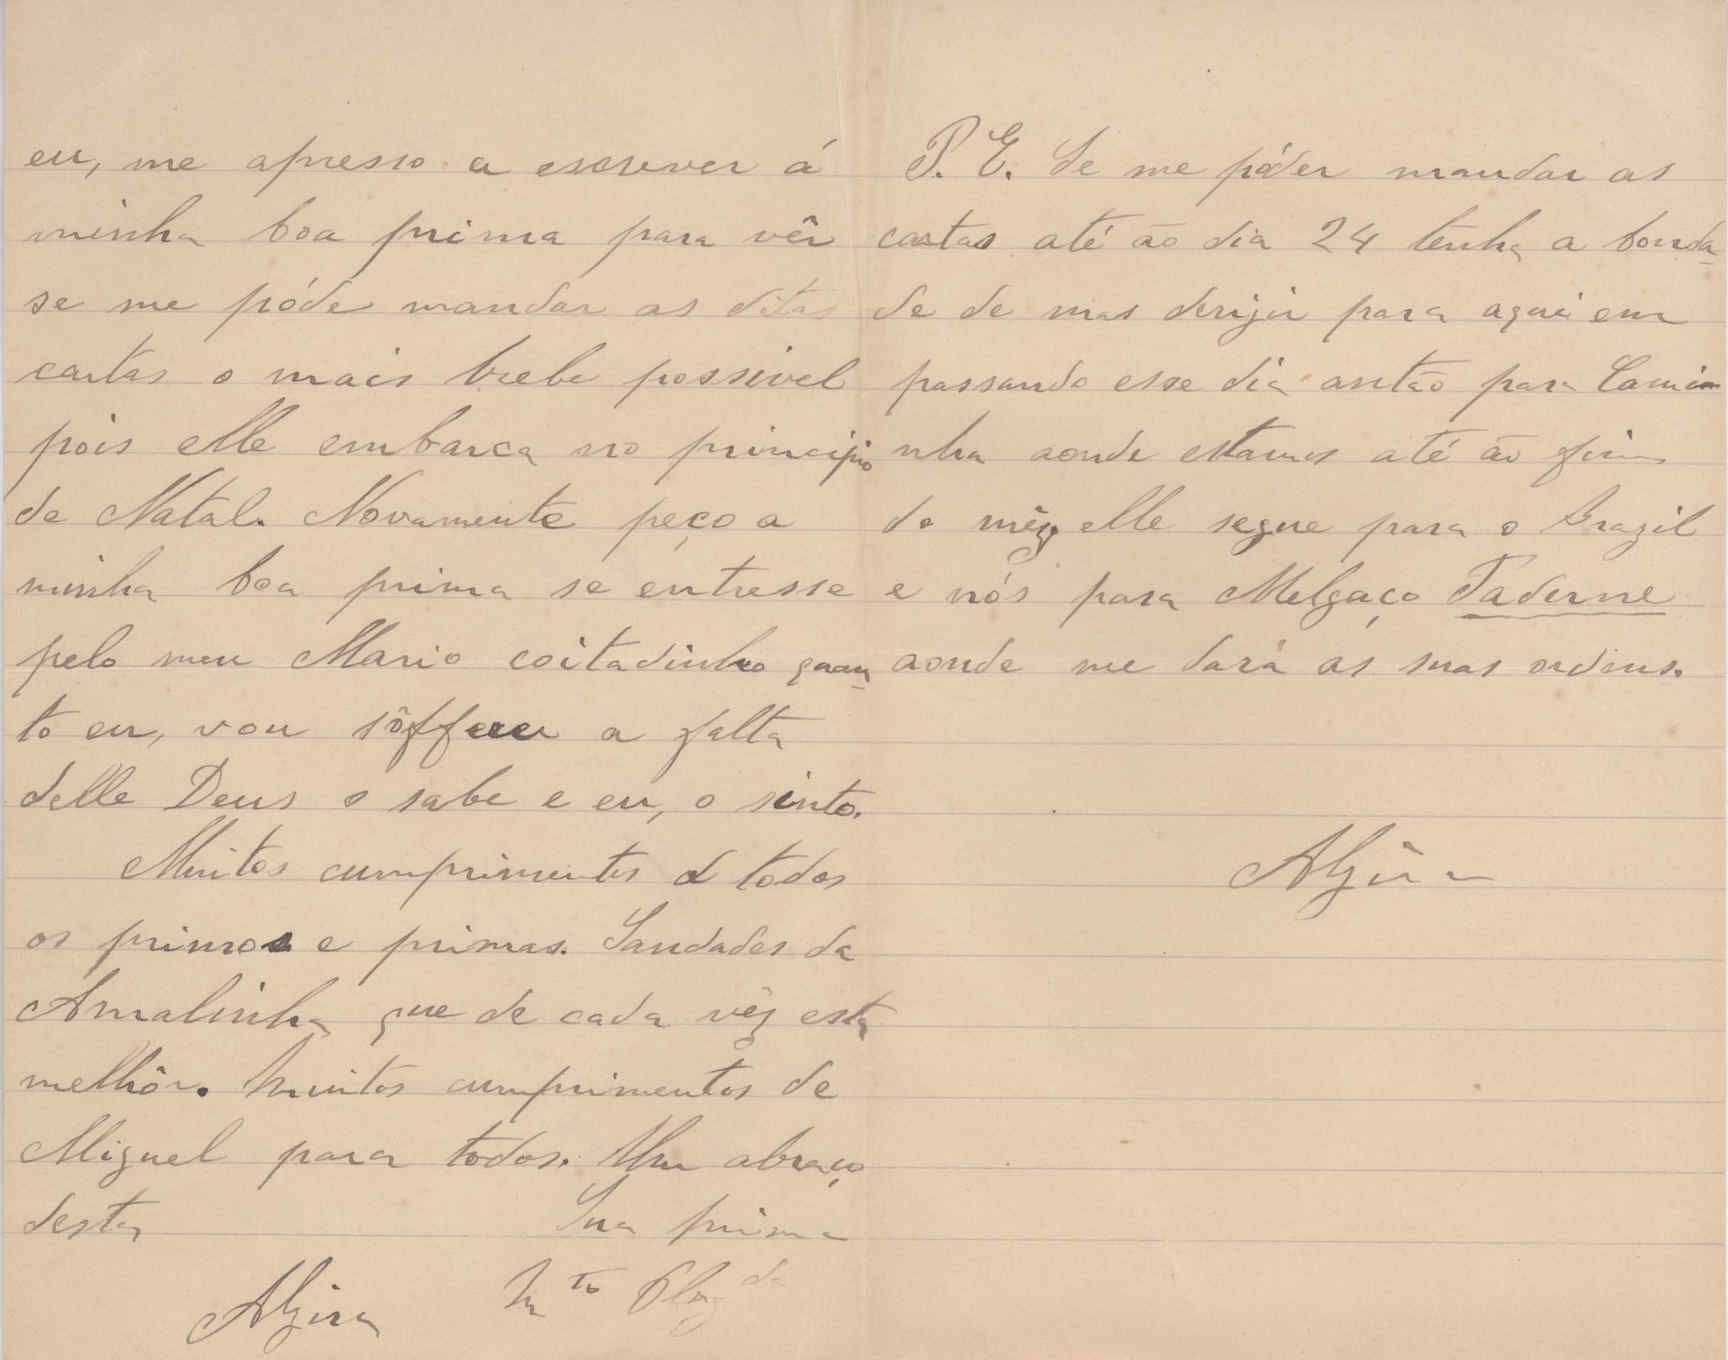 eu, me apresso a escrever á
minha boa prima para vêr
se me póde mandar as ditas
cartas o mais brebe possivel
pois elle embarca no principio
de Natal. Novamente peço a
minha boa prima se entresse
pelo meu Mario coitadinho quan-
to eu, vou sôffrer a falta
delle Deus o sabe e eu, o sinto.
Muitos cumprimentos a todos
os primos e primas. Saudades da
Amalinha que de cada vêz esta
melhôr. Muitos cumprimentos de
Miguel para todos. Um abraço
desta Sua prima
Alzira Mto Obrgda
P. E. Se me póder mandar as
cartas até ao dia 24 tenha a bonda-
de de mas derijir para aqui em
passando esse dia antão para Cami-
nha aonde estamos até ao fim
do mêz, elle segue para o Brazil
e nós para Melgaço Paderne
aonde me dará as suas ordens.
Alzira